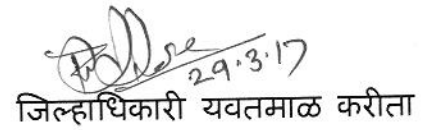 29.3.17
जिल्हाधिकारी यवतमाळ करीता